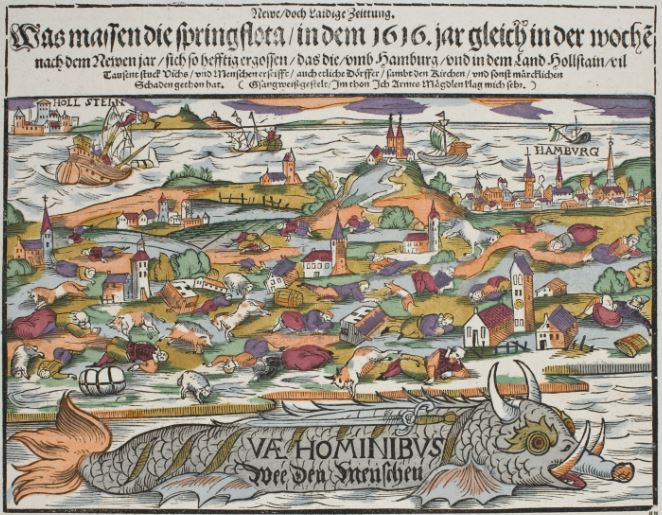 Newe/doch Laidige Zeittung.
Was massen die springflota/in dem 1616. jar gleich in der wochẽ
nach dem Newen jar/sich so hefftig ergossen/das die/vmb Hamburg/vnd in dem Land Hollstain/vil
Tausent stuck Vichs/vnd Menschen erseufft/auch etliche Dörffer/sambt den Kirchen/vnd sonst märcklichen
Schaden gethon hat. (Gsangweiß gestelt/Im thon Ich Armes Mägdlen klag mich sehr.)
HOLL STEIN
HAMBVRG
VÆ HOMINIBVS
Wee Den Menschen